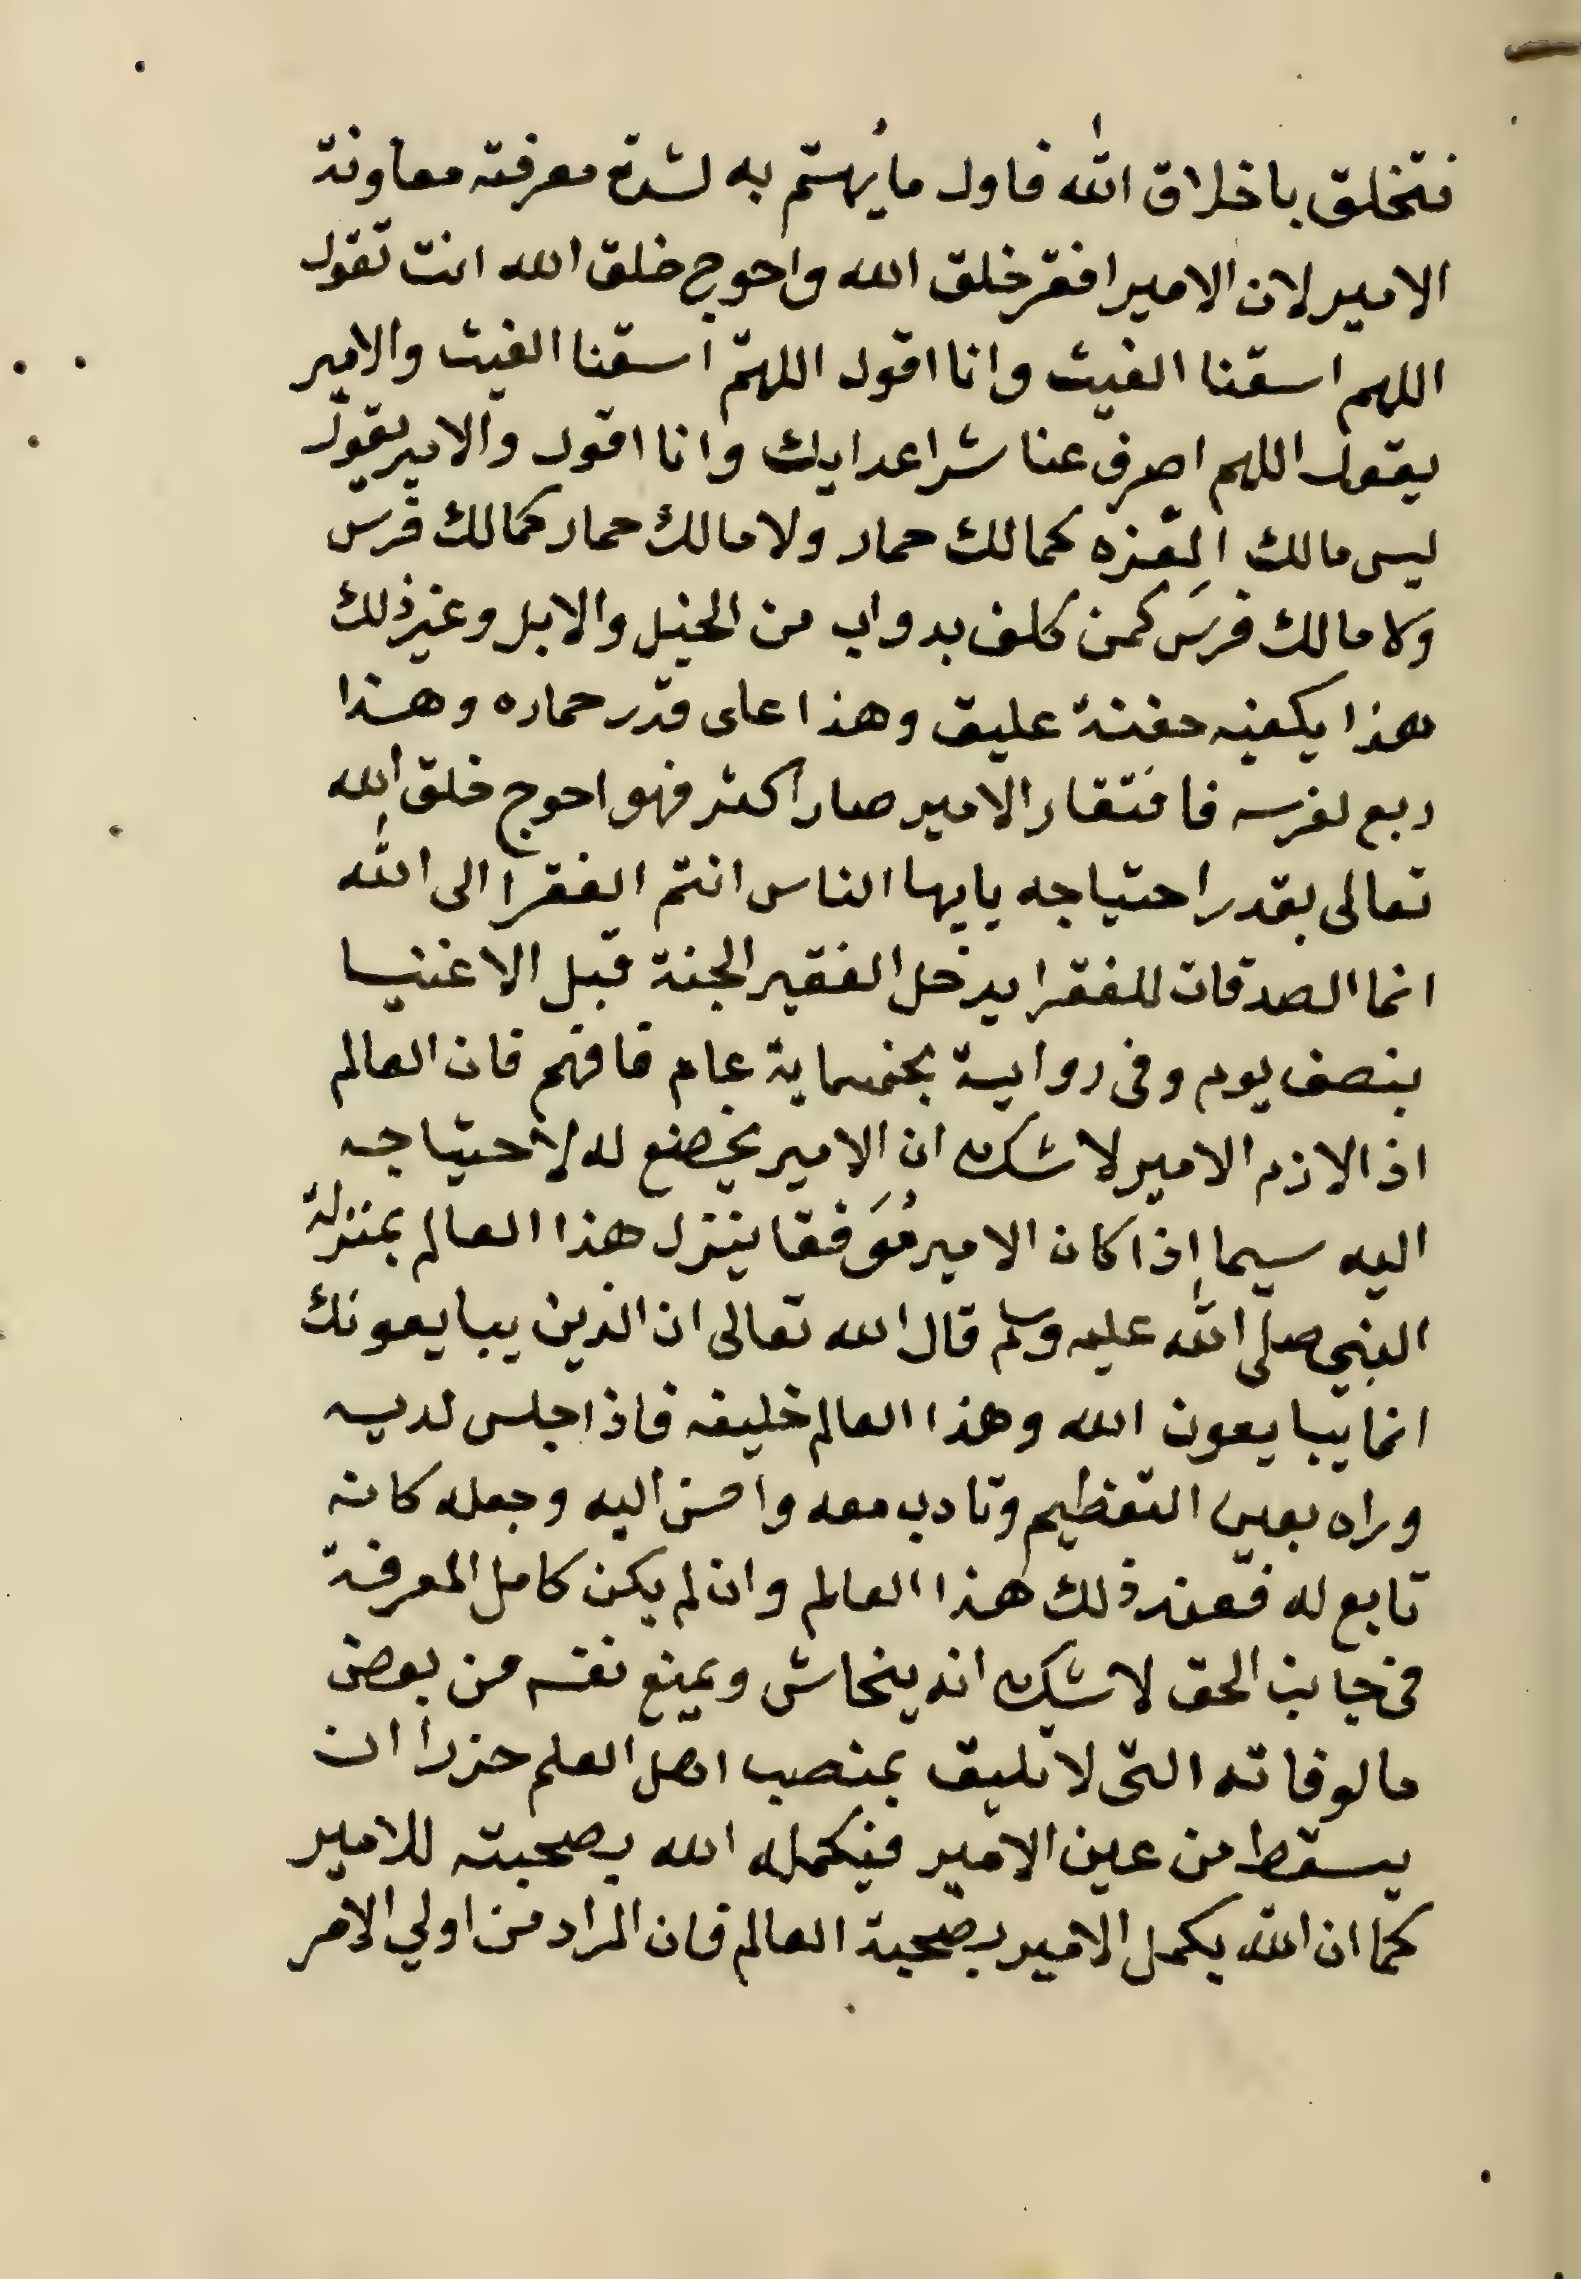 فتخلق باخلاق الله فاول ما يُهتم به لشدة معرفته معاونة
الامير لان الامير افقر خلق الله واحوج خلق الله انت تقول
اللهم اسقنا الغيث وانا اقول اللهمّ اسقنا الغيث والامير
يقول اللهم اصرف عنا شر اعدايك وانا اقول والامير يقول
ليس مالك العنزه كمالك حمار ولا مالك حمار كمالك فرس
ولا مالك فرسَ كمن كلف بدواب من الخيل والابل وغير ذلك
هذا يكفيه حفنة عليق وهذا على قدر حماره وهذا
ربع لفرسه فافتقار الامير صار اكثر فهو احوج خلق الله
تعالى بقدر احتياجه يايها الناس انتم الفقرا الى الله
انما الصدقات للفقرا يدخل الفقير الجنة قبل الاغنيا
بنصف يوم وفى رواية بخمسماية عام فافهم فان العالم
اذا لازم الامير لا شك ان الامير يخضع له لاحتياجه
اليه سيما إذا كان الامير مُوَفقا ينزل هذا العالم بمنزلة
النبي صلى الله عليه وسلم قال الله تعالى ان الذين يبايعونك
انما يبايعون الله وهذا العالم خليفه فاذا جلس لديه
وراه بعين التعظيم وتادب معه واحسن اليه وجعله كانه
تابع له فعند ذلك هذا العالم وان لم يكن كامل المعرفة
فى جانب الحق لا شك انه ينحاش ويمنع نفسه من بعض
مالوفاته التى لا تليق بمنصب اهل العلم حذرا ان
يسقط من عين الامير فيكمله الله بصحبته للامير
كما ان الله يكمل الامير بصحبة العالم فان المراد من اولي الامر